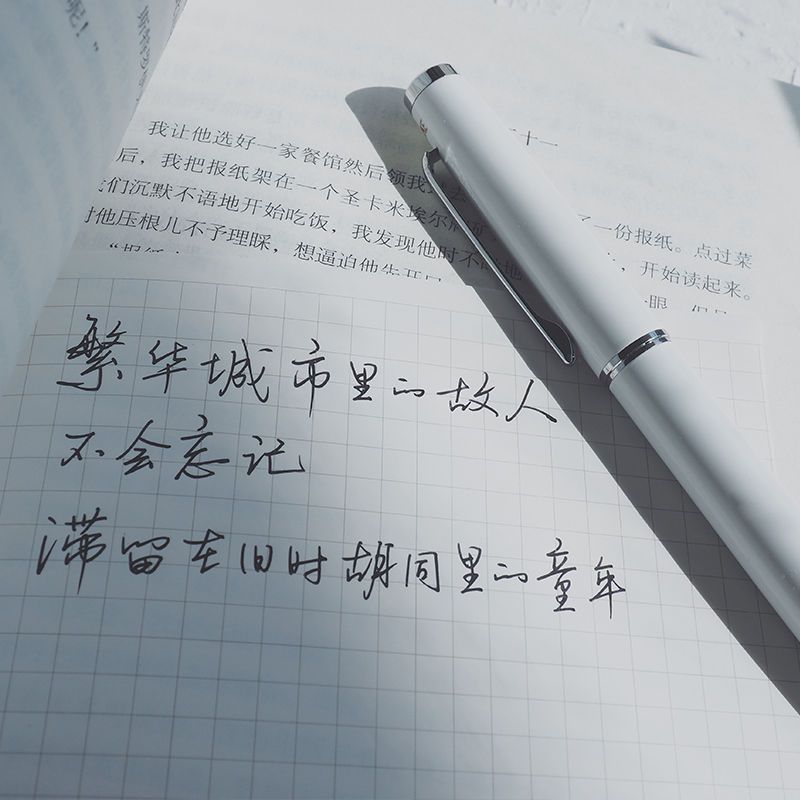 呢！"
二十一
我让他选好一家餐馆然后领我过去
后，我把报纸架在一个圣卡米埃尔 了一份报纸。点过菜
我们沉默不语地开始吃饭，我发现他时不 地 ，开始读起来。
对他压根儿不予理睬，想逼迫他先开口 眼，但是
繁华城市里的故人
不会忘记
滞留在旧时胡同里的童年